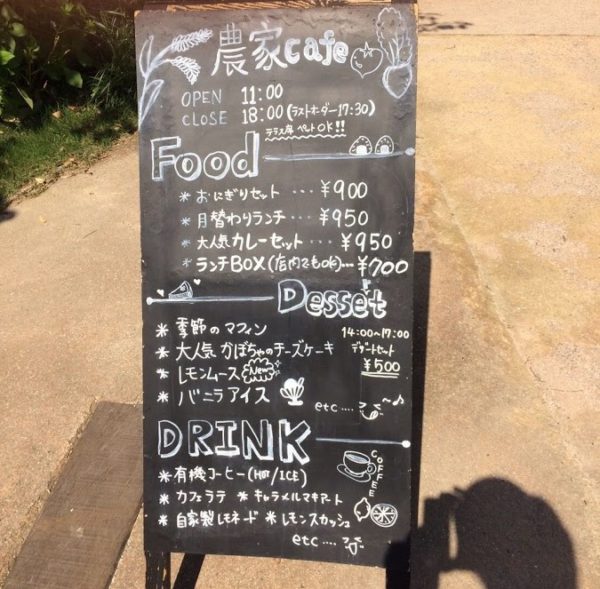 農家cafe
OPEN 11:00
CLOSE 18:00 (ラストオーダー17:30)
テラス席 ペットOK!!
Food
* おにぎりセット ... ¥900
* 月替わりランチ ... ¥950
* 大人気 カレーセット ... ¥950
* ランチBOX (店内でもOK) ... ¥700
Desset
* 季節のマフィン
14:00~17:00
* 大人気 かぼちゃのチーズケーキ
デザートセット
* レモンムース New
¥500
* バニラアイス
etc ....
DRINK
* 有機コーヒー (HOT/ICE)
COFFEE
* カフェラテ * キャラメルマキアート
* 自家製レモネード * レモンスカッシュ
etc ....